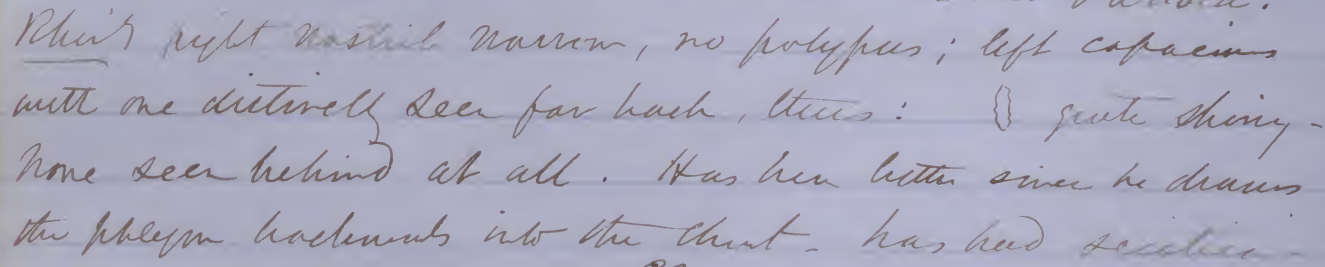 Rhin'l right nostril narrow, no polypus; left capacious
with one distinctly seen far back, thus: quite shiny -
none seen behind at all. Has been better since he draws
the phlegm backwards into the throat - has had sciatica -